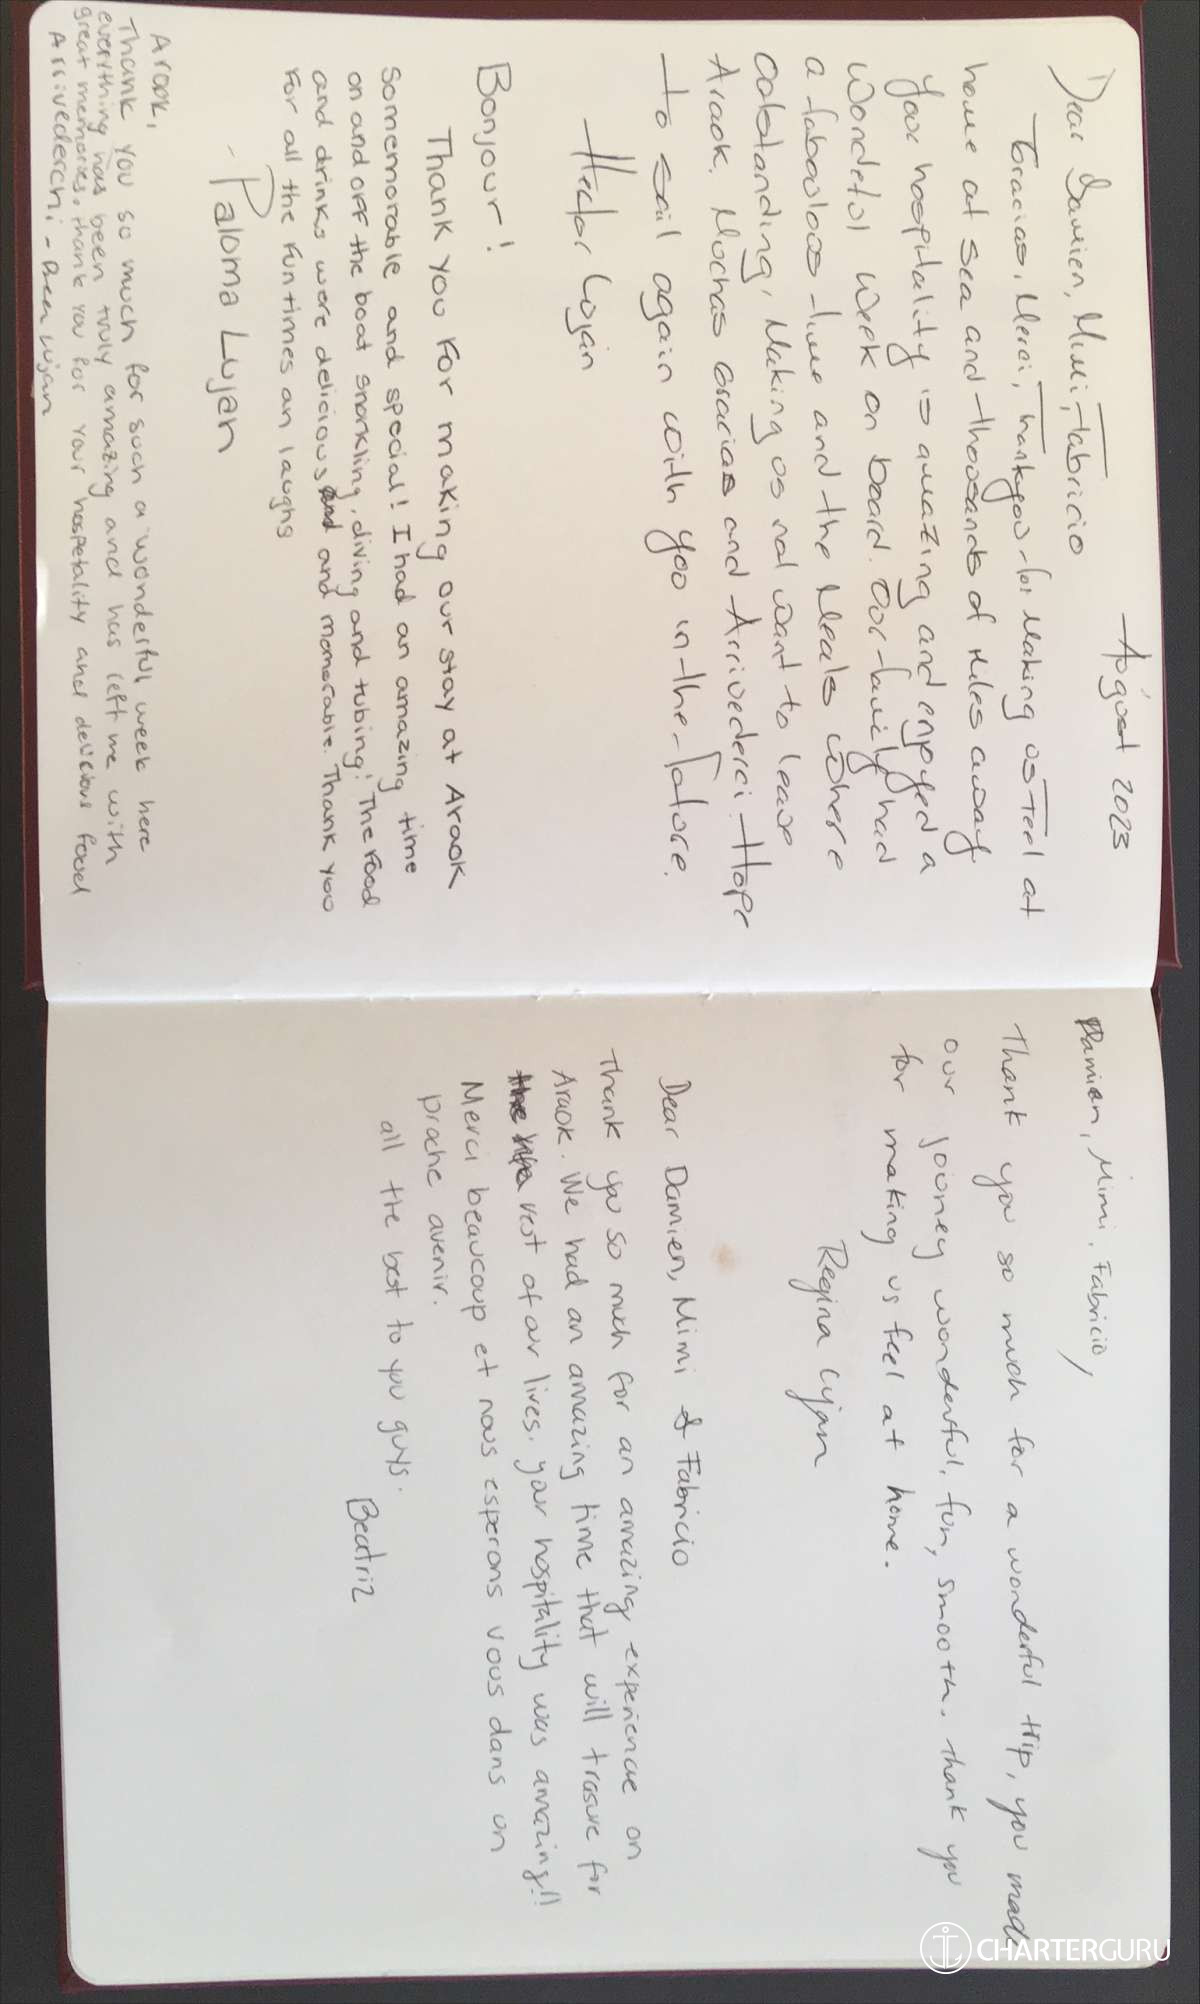 August 2023
Dear Damien, Mimi, Fabricio
Gracias, Merci, Thankyou for Making us Feel at
home at sea and thousands of Miles away
Your hospitality is amazing and enjoyed a
Wondeful Week on board. Our family had
a fabulous time and the Meals where
Outstanding, Making us not want to leave
Araok. Muchas Gracias and Arrivederci. Hope
to sail again with you in the future.
Hector Lujan
Bonjour!
Thank you for making our stay at Araok
Somemorable and special! I had an amazing time
on and off the boat snorkling, diving and tubing! The food
and drinks were delicious and and memorable. Thank you
For all the fun times an laughs
- Paloma Lujan
Araok,
Thank you so much for such a wonderful week here
everything has been truly amazing and has left me with
great memories, thank you for your hospetality and delicious food
Arrivederchi - Lujan
Damien, Mimi, Fabricio,
Thank you so much for a wonderful trip, you made
our journey wonderful, fun, smooth. Thank you
for making us feel at home.
Regina Lujan
Dear Damien, Mimi & Fabricio
Thank you so much for an amazing experience on
Araok. We had an amazing time that will trasure for
the rest of our lives. your hospitality was amazing!!
Merci beaucoup et nous esperons vous dans un
proche avenir.
all the best to you guys.
Beatriz
CHARTERGURU